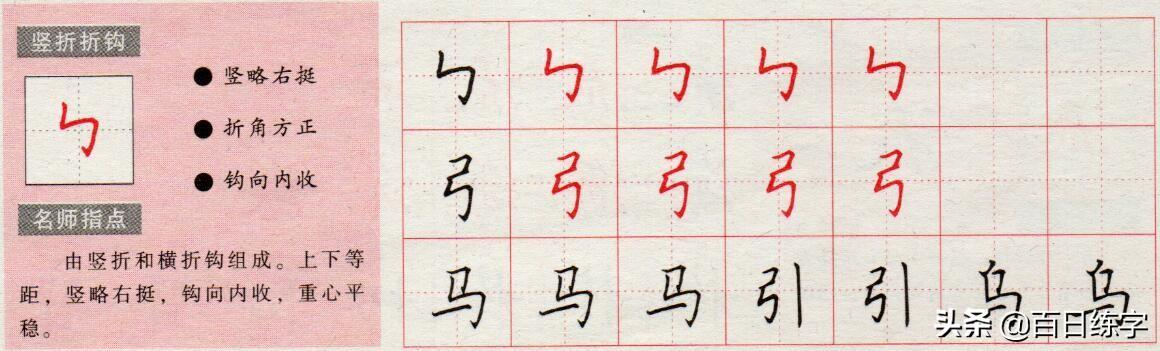 竖折折钩
㇉
竖略右挺
折角方正
钩向内收
名师指点
由竖折和横折钩组成。上下等
距，竖略右挺，钩向内收，重心平
稳。
㇉ ㇉ ㇉ ㇉ ㇉
弓 弓 弓 弓 弓
马 马 马 引 引 乌 乌
头条 @百日练字